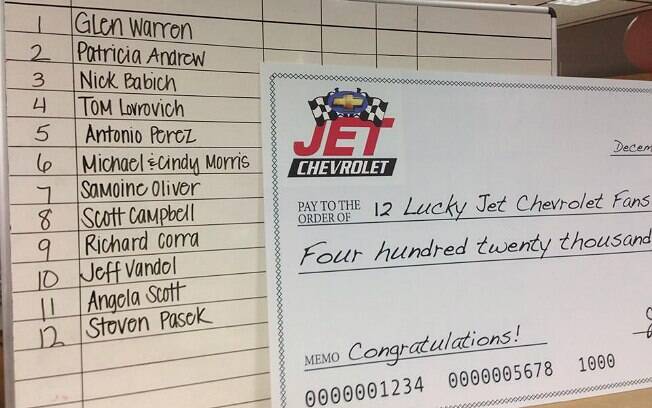 1 Glen Warren
2 Patricia Andrew
3 Nick Babich
4 Tom Lovrovich
5 Antonio Perez
6 Michael & Cindy Morris
7 Samoine Oliver
8 Scott Campbell
9 Richard Corra
10 Jeff Vandel
11 Angela Scott
12 Steven Pasek
JET
CHEVROLET
Decem
PAY TO THE
ORDER OF 12 Lucky Jet Chevrolet Fans
Four hundred twenty thousand
MEMO Congratulations!
0000001234 0000005678 1000